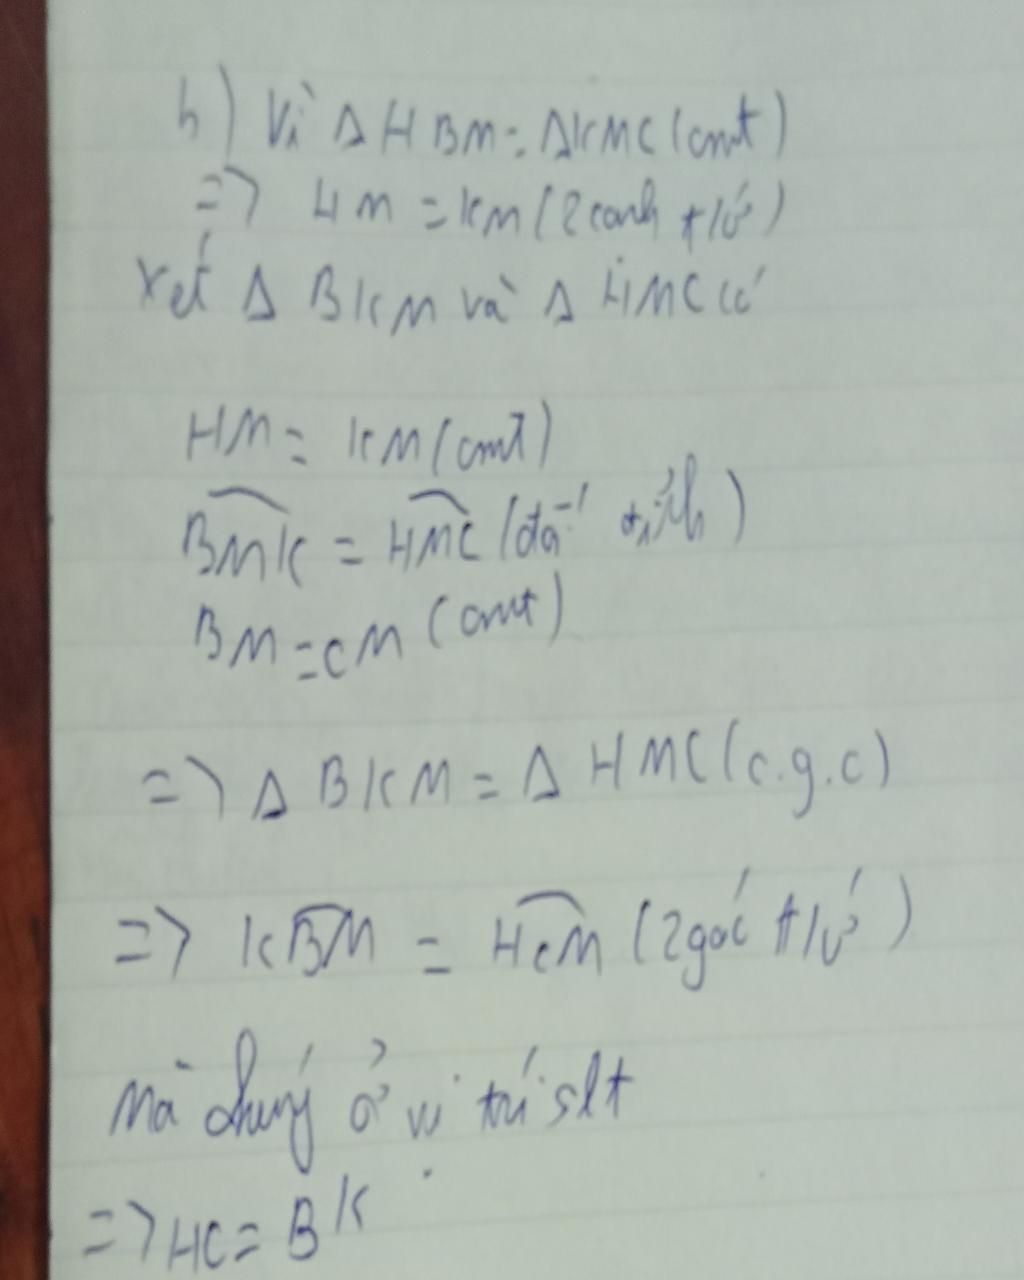 b) Vì Δ HBM = ΔKMC (cmt)
=> HM = KM (2 cạnh t/ứ)
Xét Δ BKM và Δ HMC có
HM = KM (cmt)
BMK = HMC (đối đỉnh)
BM = CM (cmt)
=> Δ BKM = Δ HMC (c.g.c)
=> KBM = HCM (2 góc t/ứ)
Mà chúng ở vị trí slt
=> HC = BK